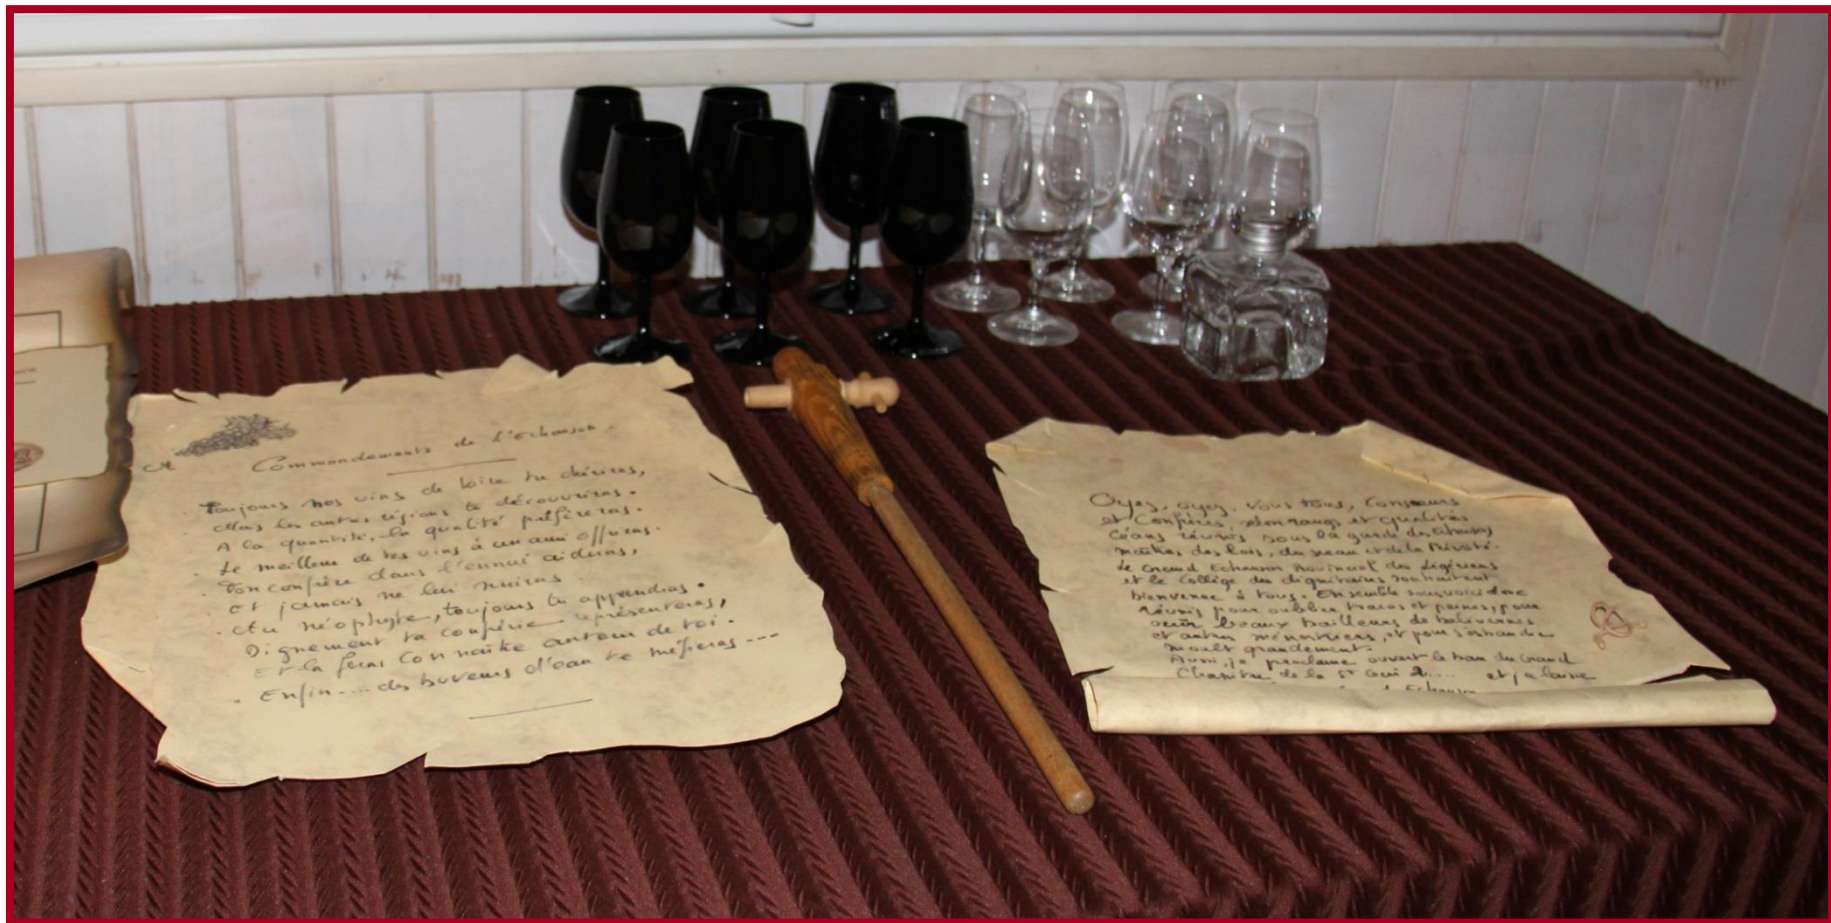 Commandements de l'Echanson.
Toujours nos vins de Loire tu chériras,
Mais les autres régions tu découvriras.
A la quantité, la qualité préfèreras.
Le meilleur de tes vins à un ami offriras.
Ton confrère dans l'ennui aideras,
et jamais ne lui nuiras
Au néophyte, toujours tu apprendras.
Dignement ta confrérie représenteras,
Et la feras connaître autour de toi.
Enfin.... des buveurs d'eau te méfieras ---
Oyez, oyez, vous tous, Consoeurs
et Confrères, selon rangs et qualités
céans réunis sous la garde des
maîtres des lois, du sceau et de la Prévôté.
Le Grand Echanson Provincial des Ligériens
et le Collège des dignitaires souhaitent
bienvenue à tous. Ensemble
réunis pour oublier tracas et peines, pour
ouïr beaux bailleurs de balivernes
et autres ménestriers, et pour s'esbaudir
moult grandement.
Aussi, je proclame ouvert le ban du Grand
Chapitre de la St Gui 2... et je laisse
Echanson